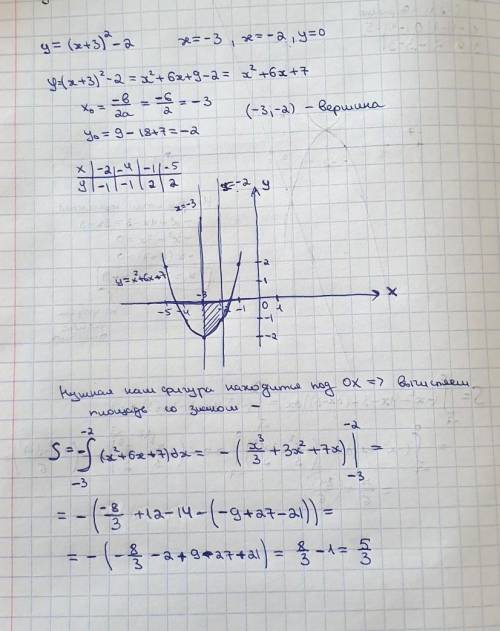 y = (x+3)² - 2   x = -3 , x = -2 , y = 0
y = (x+3)² - 2 = x² + 6x + 9 - 2 = x² + 6x + 7
x₀ = -в/2a = -6/2 = -3   (-3, -2) - вершина
y₀ = 9 - 18 + 7 = -2
x | -2 | -4 | -1 | -5
y | -1 | -1 | 2 | 2
x = -3   x = -2   y
y = x² + 6x + 7
2
1
-5 -4 -3 -2 -1 0 1 x
-1
-2
Нужная нам фигура находится под OX => вычисляем
площадь со знаком -
S = -∫₋₃⁻² (x² + 6x + 7) dx = - (x³/3 + 3x² + 7x) |₋₃⁻² =
= - (-8/3 + 12 - 14 - (-9 + 27 - 21)) =
= - (-8/3 - 2 + 9 - 27 + 21) = 8/3 - 1 = 5/3